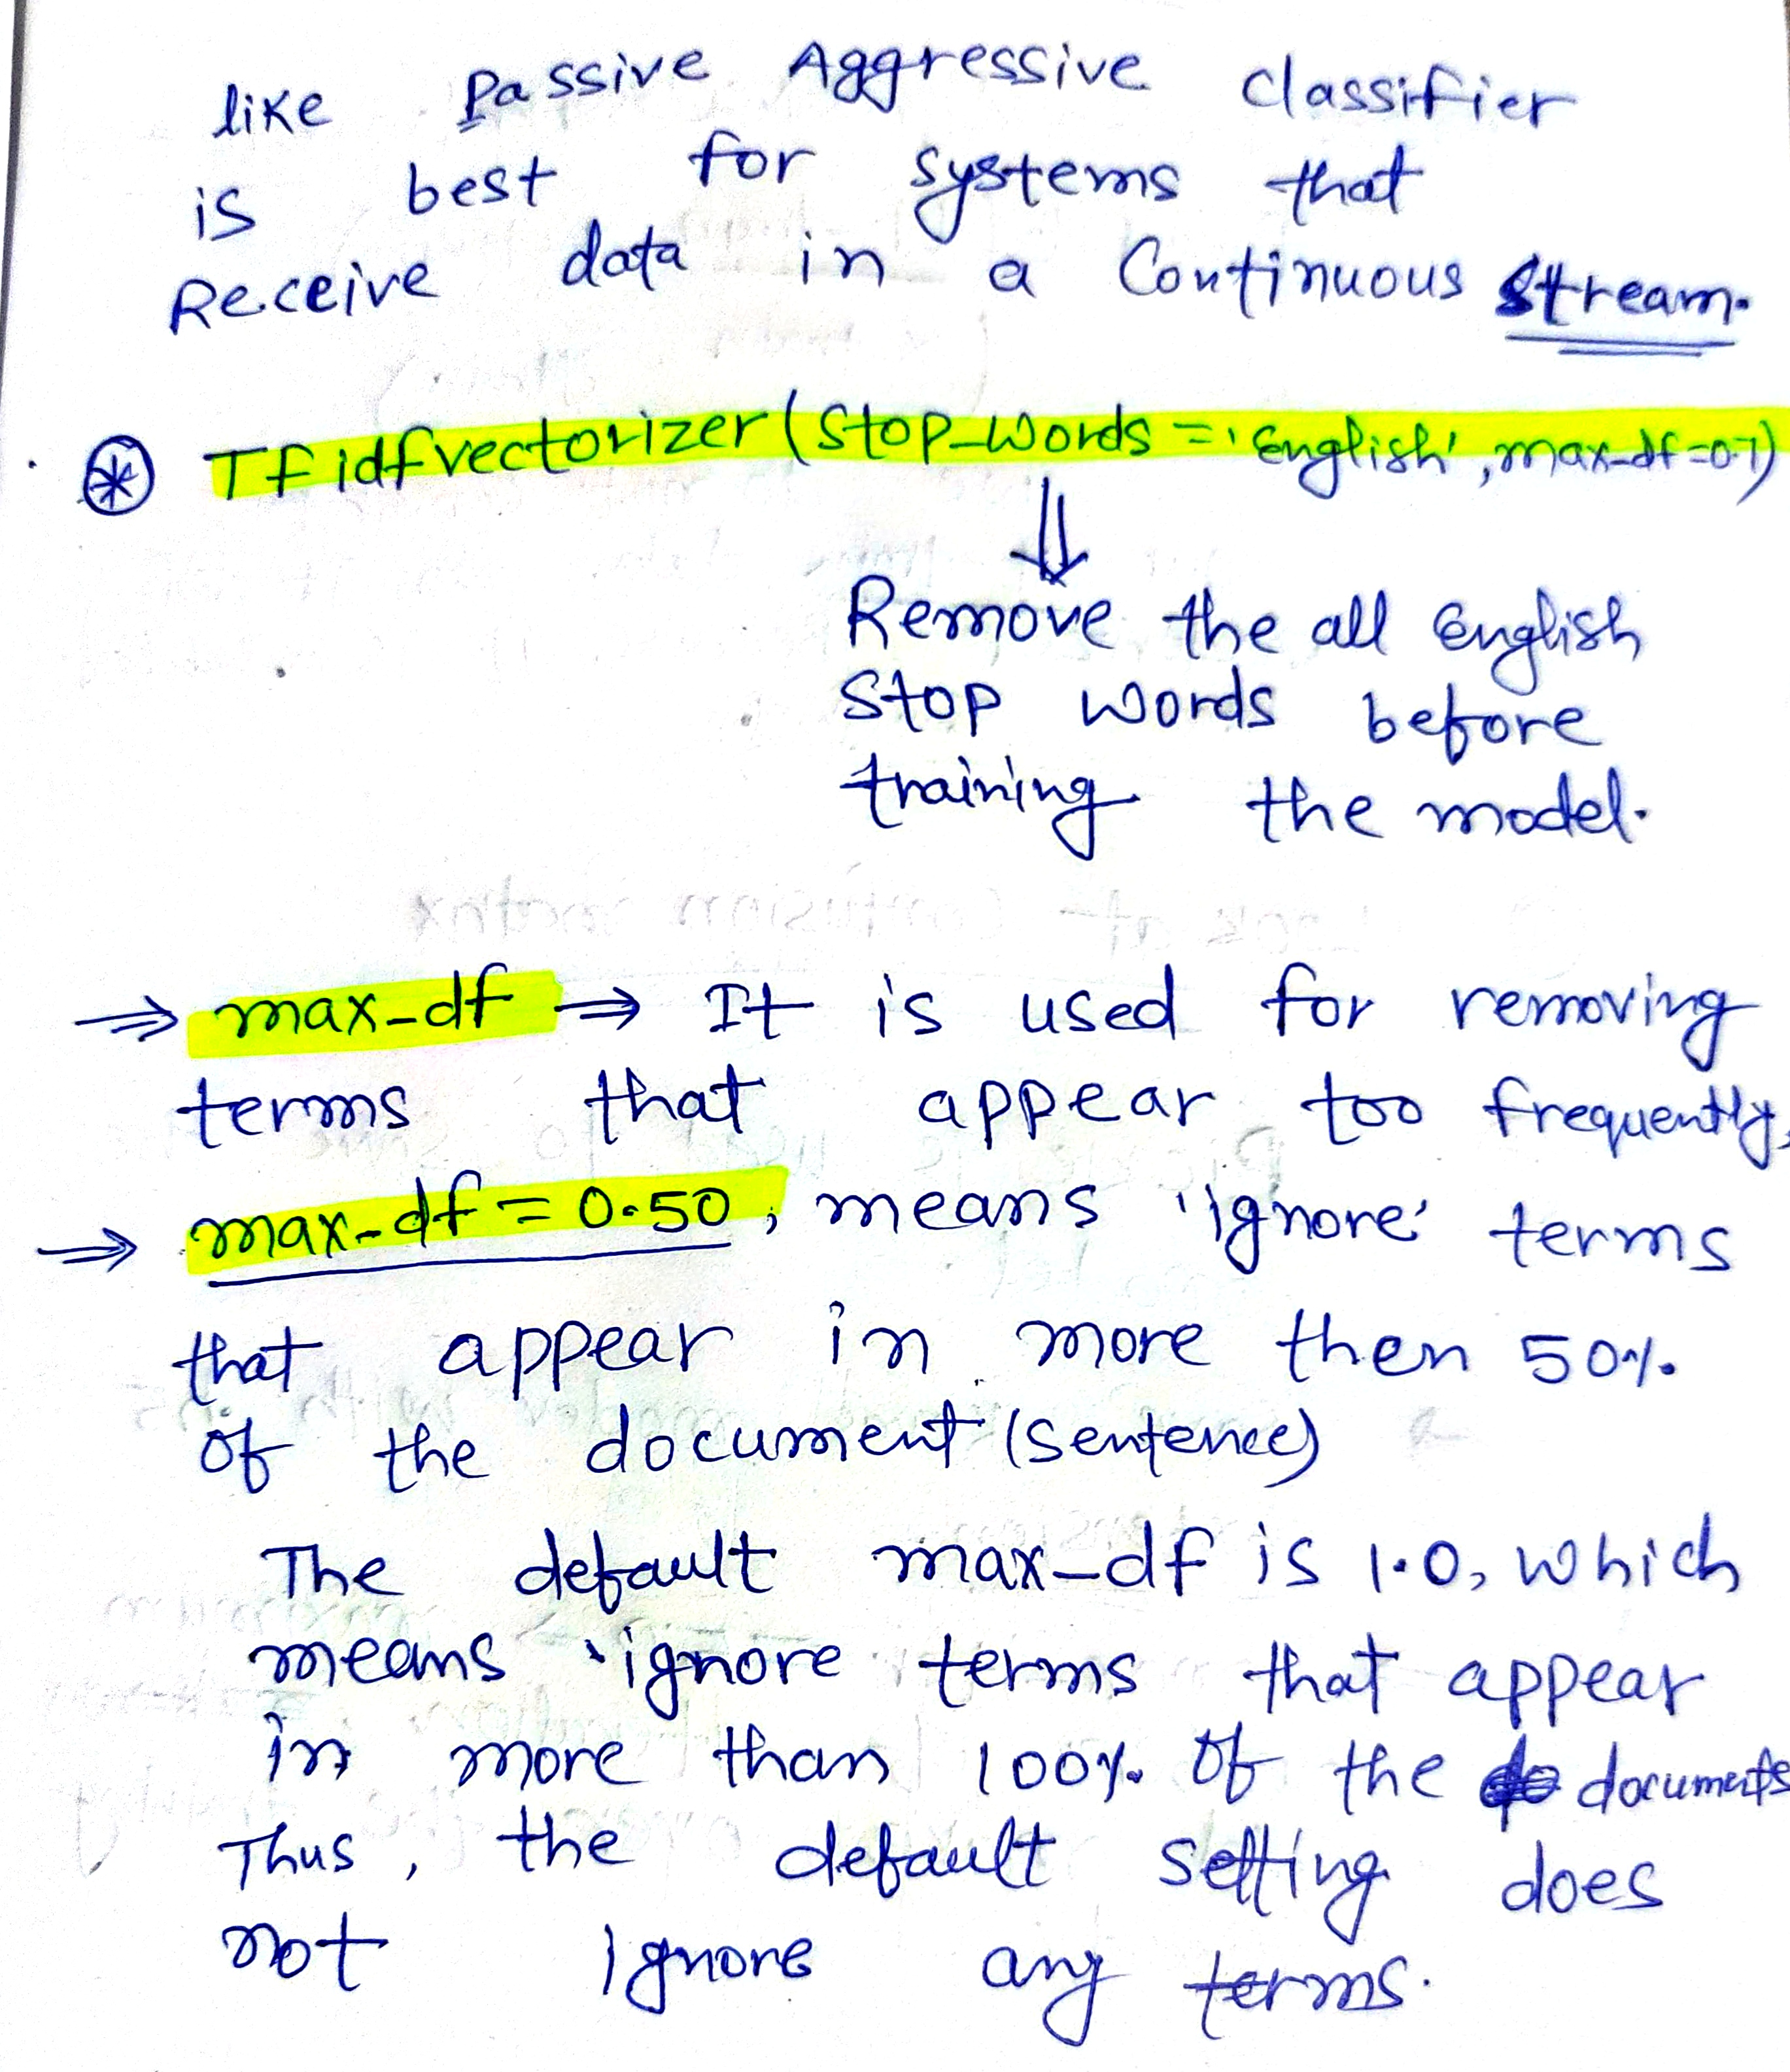 like Passive Aggressive classifier
is best for systems that
Receive data in a Continuous stream.
* Tfidfvectorizer (Stop_words = 'English', max_df=0.7)
⇓
Remove the all English
Stop words before
training the model.
⇒ max_df ⇒ It is used for removing
terms that appear too frequently,
⇒ max_df = 0.50, means 'ignore' terms
that appear in more then 50%
of the document (sentence)
The default max_df is 1.0, which
means 'ignore terms that appear
in more than 100% of the documents
Thus, the default setting does
not ignore any terms.